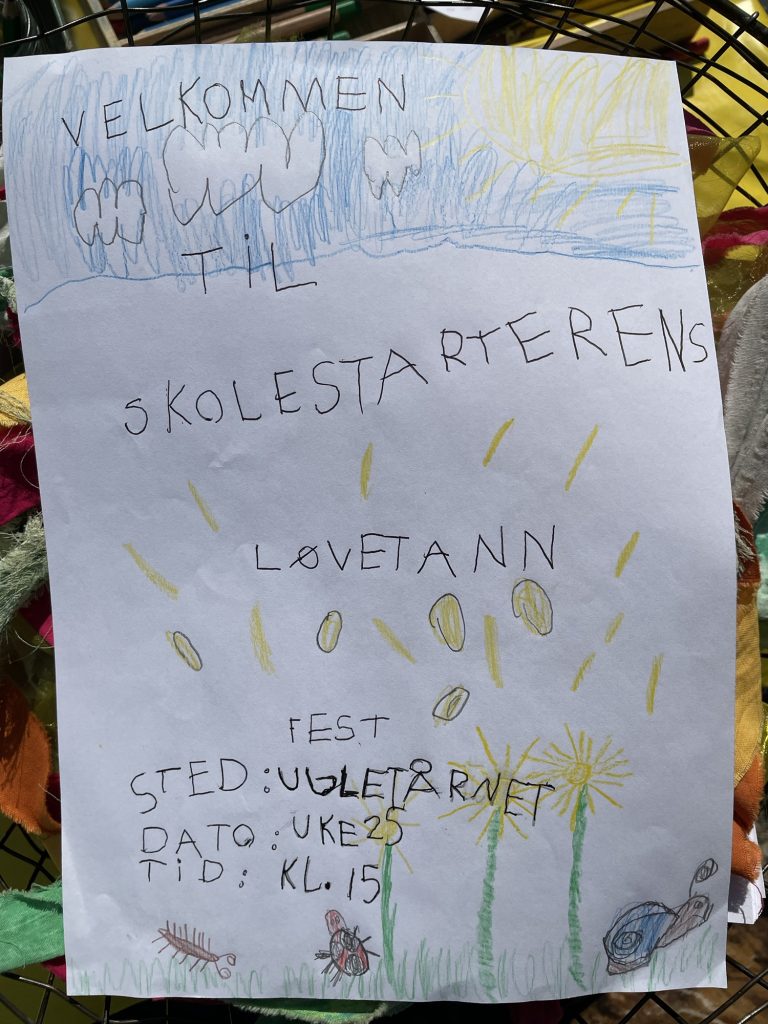 VELKOMMEN
TIL
SKOLESTARTERENS
LØVETANN
FEST
STED: UGLETÅRNET
DATO: UKE 25
TID: KL. 15